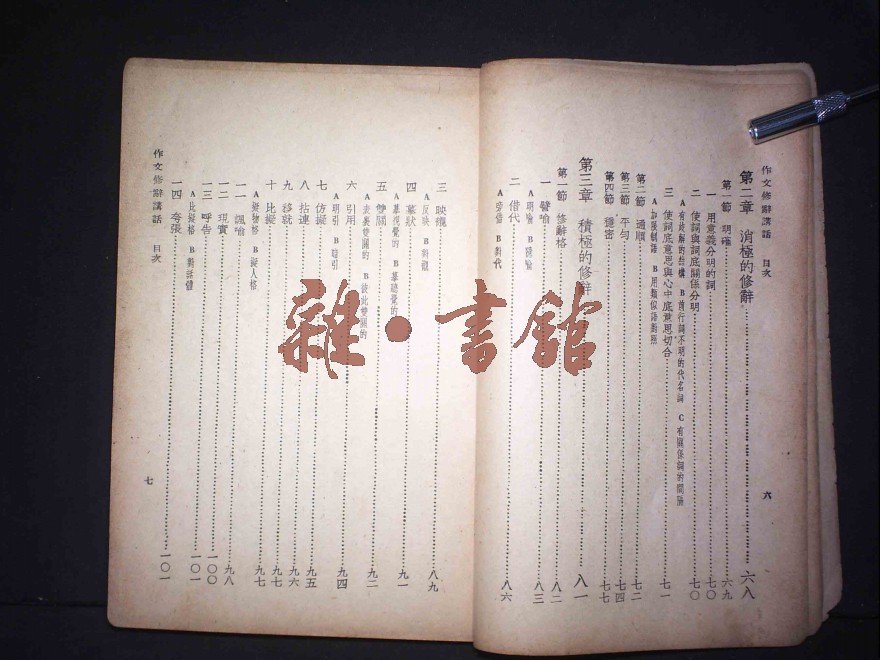 作文修辭講話　目次
第二章　消極的修辭……六八
第一節　明確……六九
一　用意義分明的詞……七〇
二　使詞與詞底關係分明……七〇
A 有歧解的結構　B 前行詞不明的代名詞　C 有關係詞的間隔
三　使詞底意思與心中底意思切合……七一
A 加限制語　B 用類似語對照
第二節　通順……七二
第三節　平勻……七四
第四節　穩密……七七
第三章　積極的修辭……八一
第一節　修辭格……八二
一　譬喻……八三
A 明喻　B 隱喻
二　借代……八六
A 旁借　B 對代
六
三　映襯……八九
A 反映　B 對襯
四　摹狀……九一
A 摹視覺的　B 摹聽覺的
五　雙關……九二
A 表裏雙關的　B 彼此雙關的
六　引用……九四
A 明引　B 暗引
七　仿擬……九五
八　拈連……九六
九　移就……九七
十　比擬……九七
A 擬物格　B 擬人格
一一　諷喻……九八
一二　現實……一〇〇
一三　呼告……一〇一
A 比擬格　B 對話體
一四　夸張……一〇一
作文修辭講話　目次
七
雜·書館